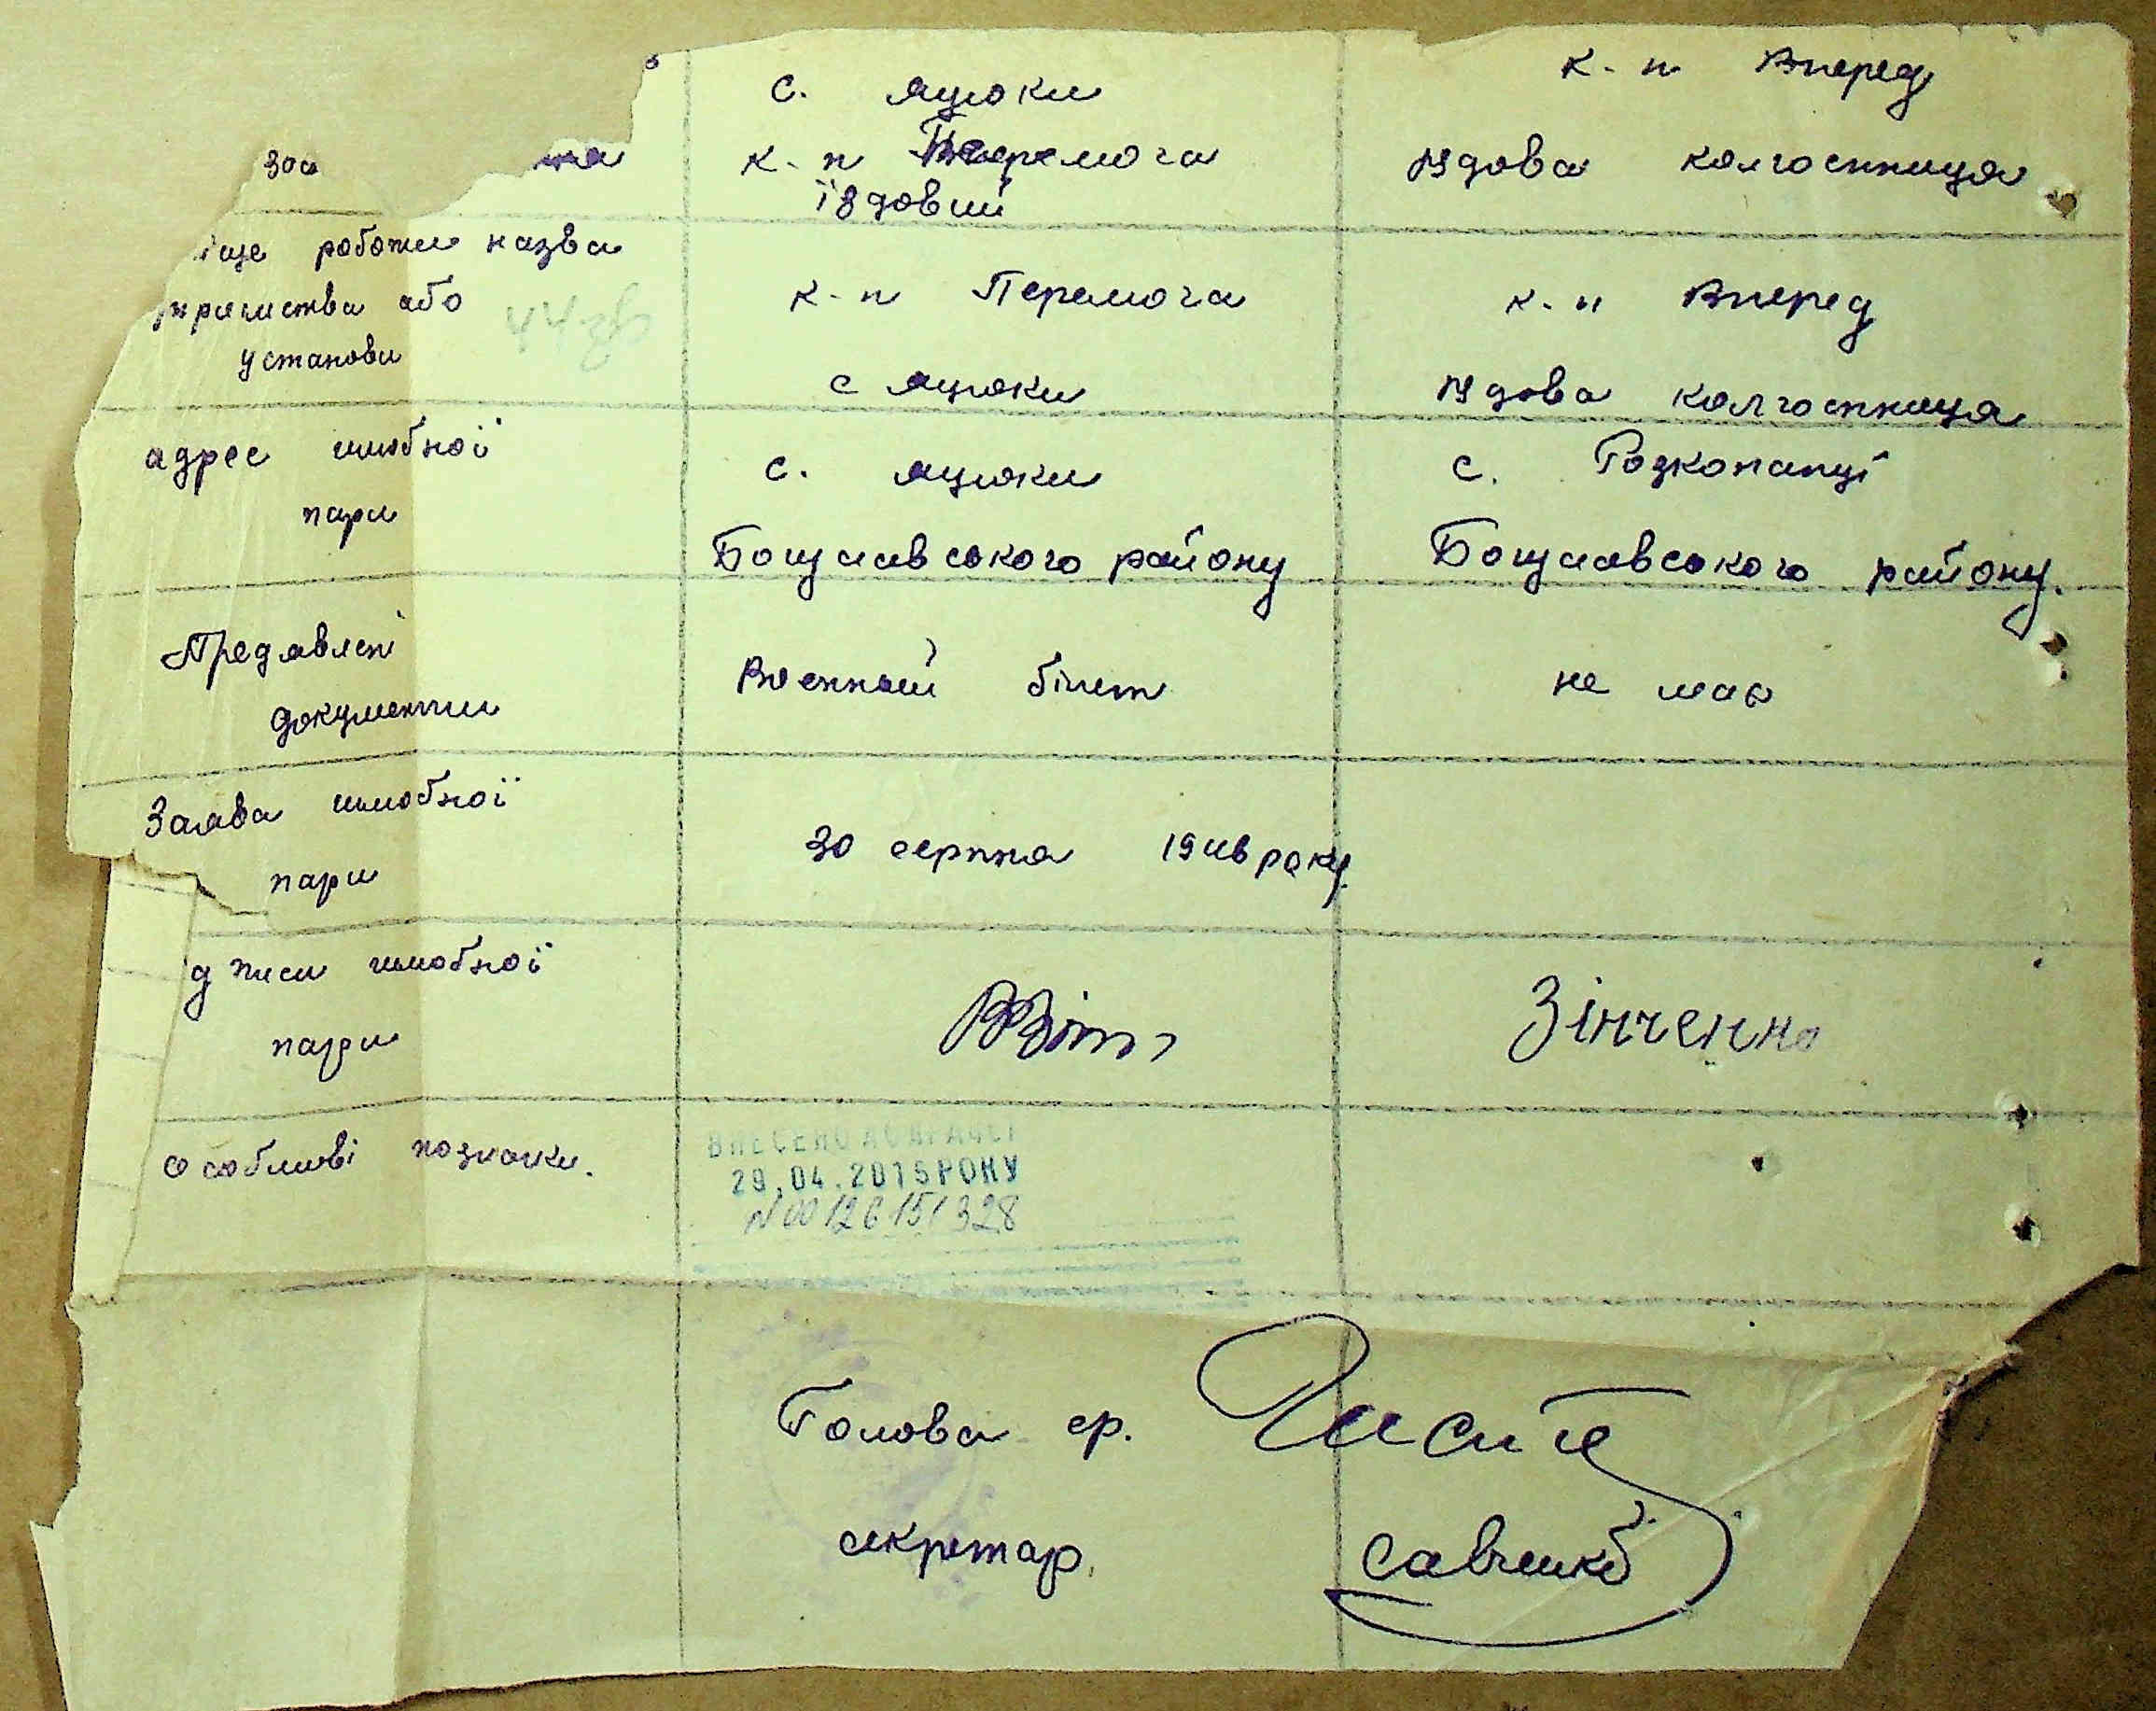 с. Яцюки
к-п Вперед
к-п Перемога
Їздовий
Їздова колгоспниця
ще роботи назва
або
установи
к-п Перемога
с Яцюки
к-п Вперед
Їздова колгоспниця
адрес шлюбної
пари
с. Яцюки
Богуславського району
с. Розкопанці
Богуславського району.
Предявлені
документи
Военный білет
не має
Заява шлюбної
пари
30 серпня 1946 року
дписи шлюбної
пари
Зінченко
особливі позначки.
ВНЕСЕНО ДО ДРАЦСГ
29.04.2015 РОКУ
N 00126151328
Голова ср.
секретар.
Савченко